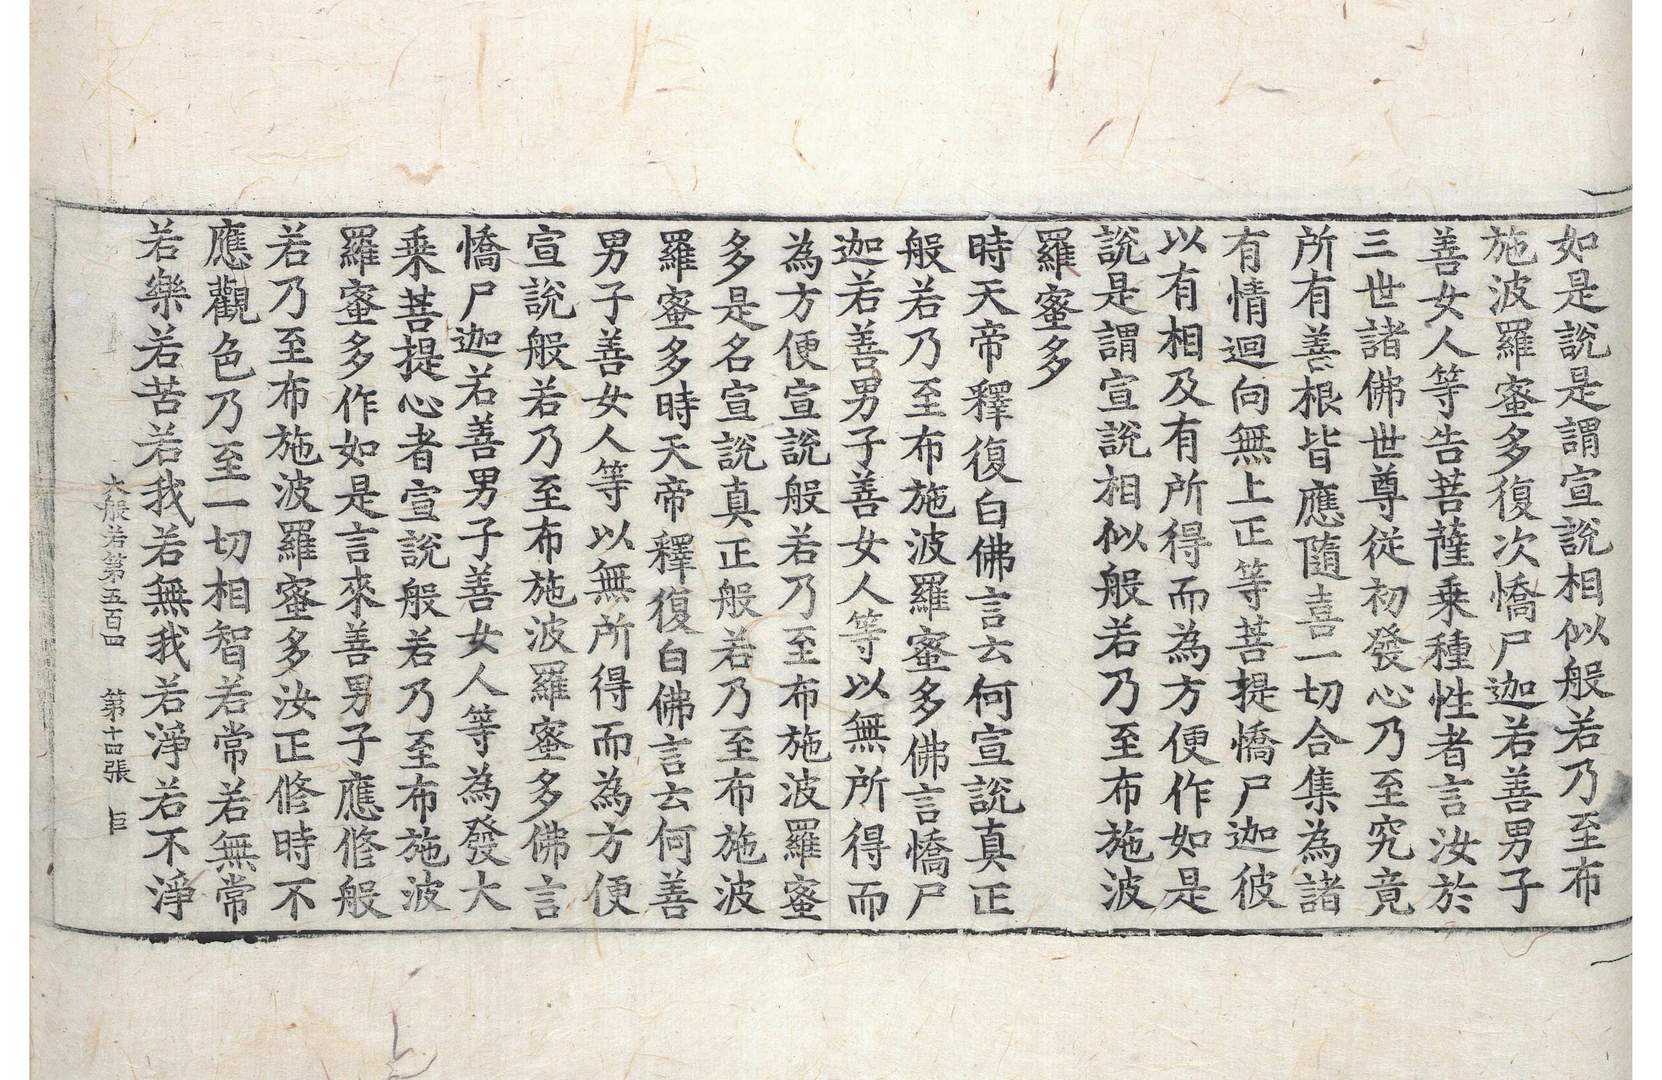 如是說是謂宣說相似般若乃至布
施波羅蜜多復次憍尸迦若善男子
善女人等告菩薩乗種性者言汝於
三世諸佛世尊從初發心乃至究竟
所有善根皆應隨喜一切合集為諸
有情迴向無上正等菩提憍尸迦彼
以有相及有所得而為方便作如是
說是謂宣說相似般若乃至布施波
羅蜜多
時天帝釋復白佛言云何宣說真正
般若乃至布施波羅蜜多佛言憍尸
迦若善男子善女人等以無所得而
為方便宣說般若乃至布施波羅蜜
多是名宣說真正般若乃至布施波
羅蜜多時天帝釋復白佛言云何善
男子善女人等以無所得而為方便
宣說般若乃至布施波羅蜜多佛言
憍尸迦若善男子善女人等為發大
乗菩提心者宣說般若乃至布施波
羅蜜多作如是言來善男子應修般
若乃至布施波羅蜜多汝正修時不
應觀色乃至一切相智若常若無常
若樂若苦若我若無我若淨若不淨
大般若第五百四 第十四張 𠀍